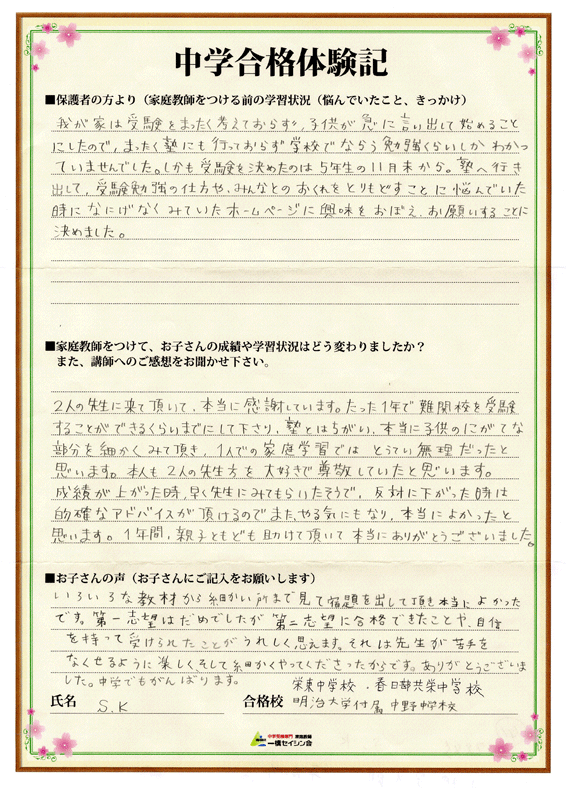 中学合格体験記
■保護者の方より（家庭教師をつける前の学習状況（悩んでいたこと、きっかけ）
我が家は受験をまったく考えておらず、子供が急に言い出して始めること
にしたので、まったく塾にも行っておらず学校でならう勉強くらいしかわかっ
ていませんでした。しかも受験を決めたのは5年生の11月末から。塾へ行き
出して、受験勉強の仕方や、みんなとのおくれをとりもどすことに悩んでいた
時になにげなくみていたホームページに興味をおぼえ、お願いすることに
決めました。
■家庭教師をつけて、お子さんの成績や学習状況はどう変わりましたか？
また、講師へのご感想をお聞かせ下さい。
2人の先生に来て頂いて、本当に感謝しています。たった1年で難関校を受験
することができるくらいまでにして下さり、塾とはちがい、本当に子供のにがてな
部分を細かくみて頂き、1人での家庭学習ではとうてい無理だったと
思います。本人も2人の先生方を大好きで尊敬していたと思います。
成績が上がった時、早く先生にみてもらいたそうで、反対に下がった時は
的確なアドバイスが頂けるのでまた、やる気にもなり、本当によかったと
思います。1年間、親子ともども助けて頂いて本当にありがとうございました。
■お子さんの声（お子さんにご記入をお願いします）
いろいろな教材から細かい所まで見て宿題を出して頂き本当によかった
です。第一志望はだめでしたが第二志望に合格できたことや、自信
を持って受けられたことがうれしく思えます。それは先生が苦手を
なくせるように楽しく、そして細かくやってくださったからです。ありがとうございま
した。中学でもがんばります。
栄東中学校・春日部共栄中学校
氏名 S.K 合格校 明治大学付属中野中学校
中学受験専門 家庭教師
一橋セイシン会